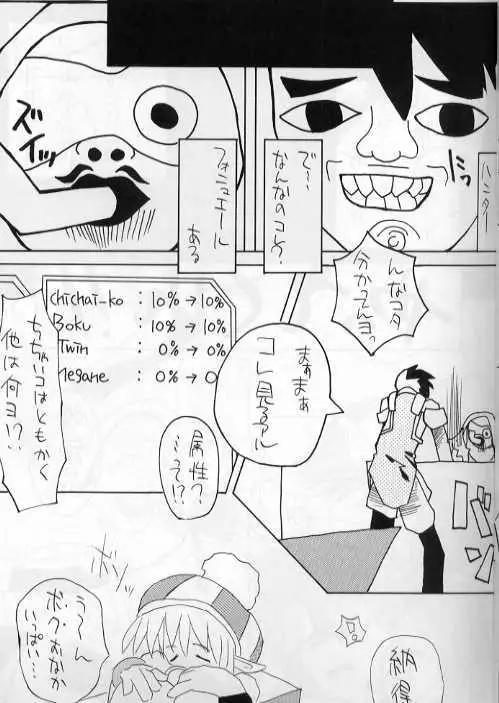 ハンター
にっ
で…
なんなのコレ?
フォニュエール
ある
ズイッ
んなコタ
分かってんヨっ
まぁまぁ
コレ見るアル
バンッ
chichai-ko : 10% → 10%
Boku : 10% → 10%
Twin : 0% → 0%
Megane : 0% → 0
属性?
…って!?
ちっちゃいコはともかく
他は何ヨ!?
納得
う〜ん
ボクおなか
いっぱい…